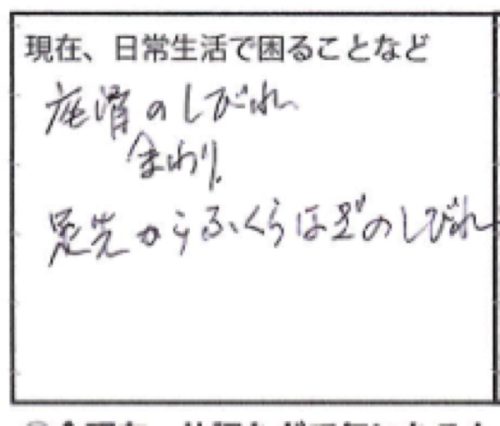 現在、日常生活で困ることなど
座骨のしびれ
まわり
足先からふくらはぎのしびれ